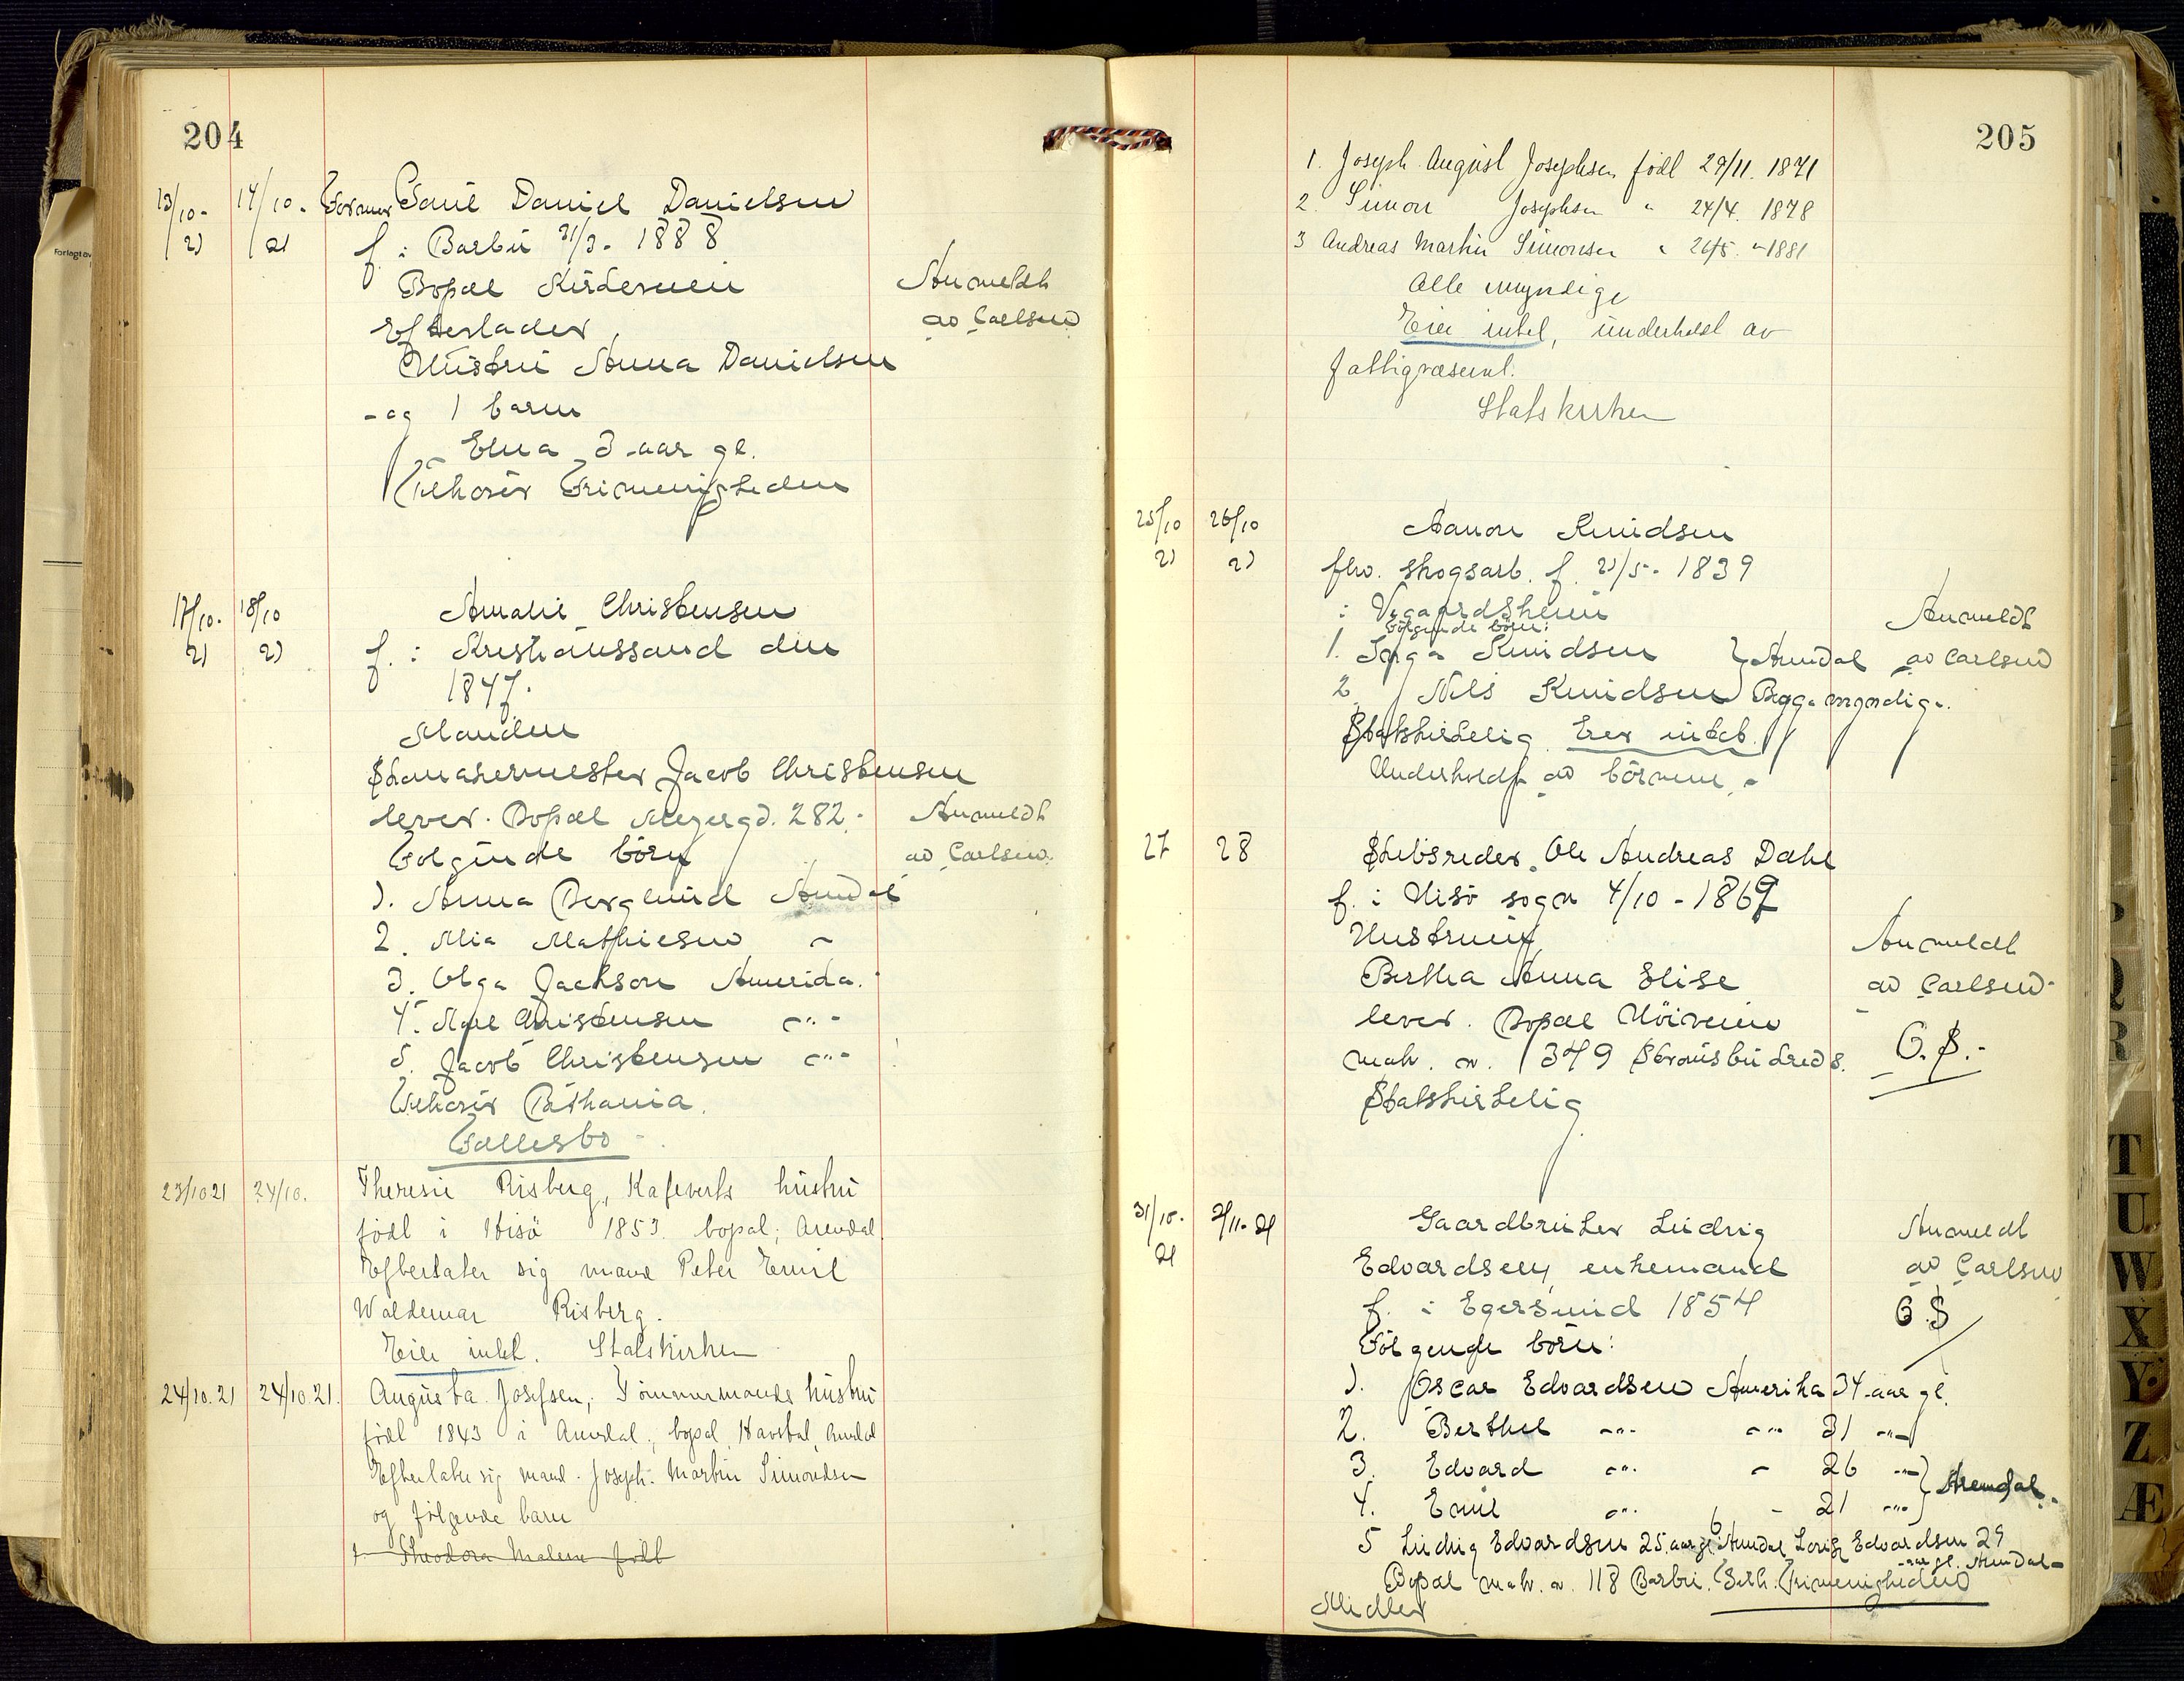 204
13/10- 14/10- Former Paul Daniel Danielsen
21 21 f. i Barbu 31/3- 1888
Bopæl Kirkeveien
Efterlader
Hustru Anna Danielsen
Anmeldt
av Carlsen
- og 1 barn
Elna 3 aar gl.
Tilhører Frimenigheden
17/10- 18/10 Amalie Christensen
21 21 f. i Kristianssand den
1847.
Manden
Skomakermester Jacob Christensen
lever. Bopæl Meyergd. 282.
Følgende børn
Anmeldt
av Carlsen.
1. Anna Berglund Arendal
2. Mia Mathiesen "
3. Olga Jackson Amerika.
4. Christensen "
5. Jacob Christensen "
Tilhører Bethania.
Fællesbo
23/10 21 24/10. Theresie Risberg, Kafeverts hustru
født i Hisö 1853. bopæl; Arendal
Efterlater sig mand Peter Emil
Waldemar Risberg.
Eier intet. Statskirken
24/10.21 24/10.21. Augusta Josefsen, Tömmermands hustru
født 1843 i Arendal; bopæl, Havstad, Arendal
Efterlater sig mand. Joseph. Martin Simondsen
og følgende barn
1. Theodora Malene født
205
1. Joseph August Josephsen født 29/11. 1871
2. Simon Josephsen " 24/4. 1878
3 Andreas Martin Simonsen " 26/5. "1881
Alle myndige
Eier intet, underholdt av
fattigvæsenet.
Statskirken
25/10 26/10 Aanon Knudsen
21 21 fhv. skogsarb. f. 21/5- 1839
i Vegaardsheien
følgende børn:
1. Knudsen } Arendal
2. Nils Knudsen } Begge myndige.
Anmeldt
av Carlsen
Statskirkelig. Eier intet.
Underholdt av børnene.
27 28 Skibsreder Ole Andreas Dahl
f. i Hisö sogn 4/10 - 1867
Hustruen
Bertha Anna Elise
lever. Bopæl Höiveien
matr. n. 349 Strømsbusreds.
Statskirkelig
Anmeldt
av Carlsen
O.S.-
31/10- 2/11-21 Gaardbruker Ludvig
21 Edvardsen, enkemand
f. i Egersund 1854
Følgende børn:
Anmeldt
av Carlsen
O.S
1. Oscar Edvardsen Amerika 34 aar gl.
2. Berthel " " 31 "
3. Edvard " " 26 " }
4. Emil " " 21 " } Arendal.
5 Ludvig Edvardsen 25 aar gl. Arendal 6 Edvardsen 29
aar gl. Arendal-
Bopæl matr. n. 118 Barbu. Frimenigheden
Midler